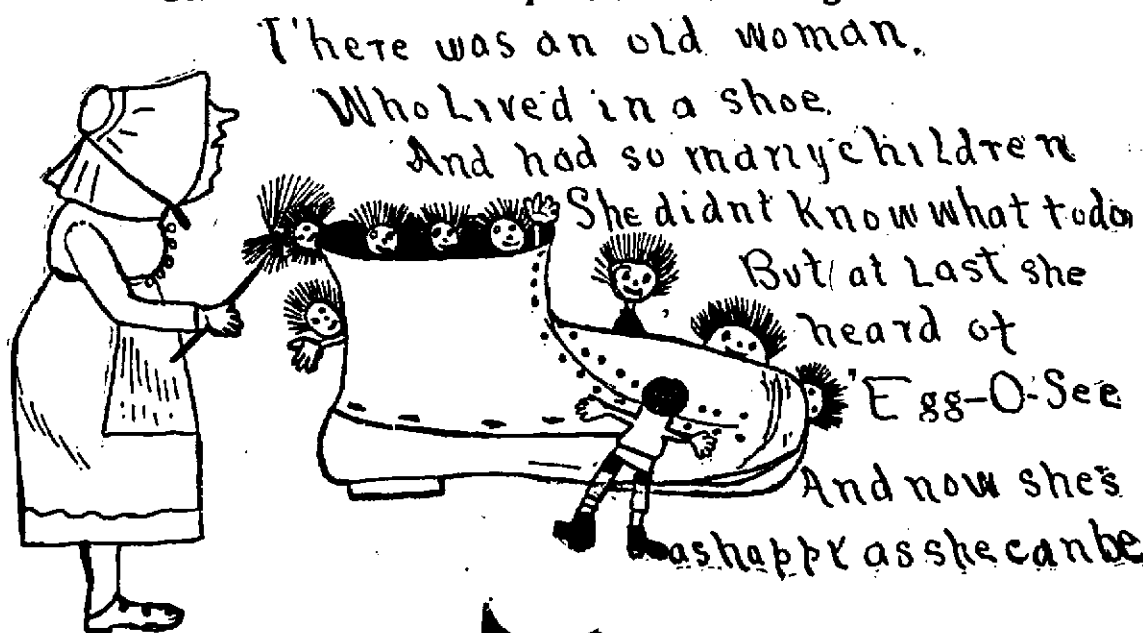 There was an old woman.
Who Lived in a shoe.
And had so many children
She didnt Know what to do
But at Last she
heard of
'Egg-O-See
And now she's
as happy as she can be